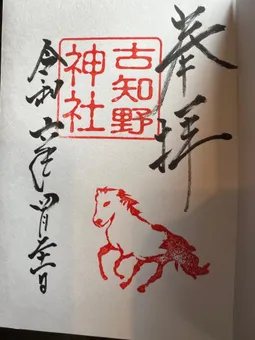 奉拝
古知野
神社
令和六年四月